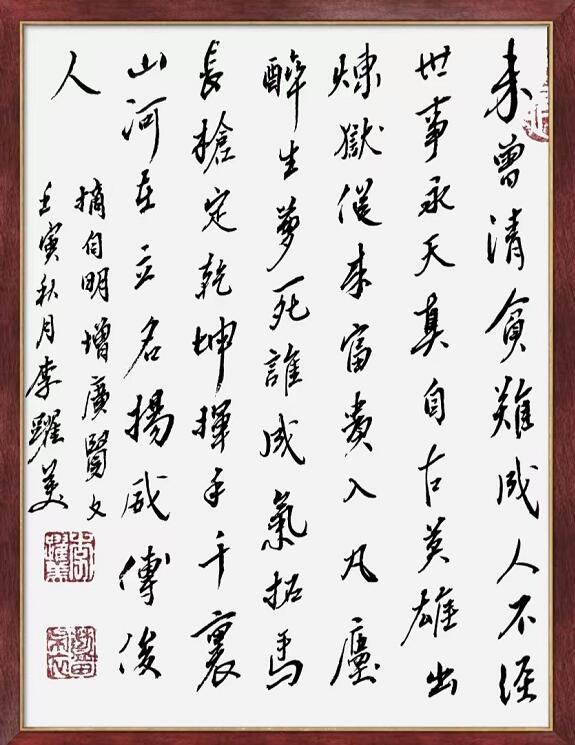 未曾清貧難成人不經
世事永天真自古英雄出
煉獄從來富貴入凡塵
醉生夢死誰成氣拓馬
長槍定乾坤揮手千裏
山河在立名揚威傳後
人
摘自明增廣賢文
壬寅秋月李躍美
李躍美